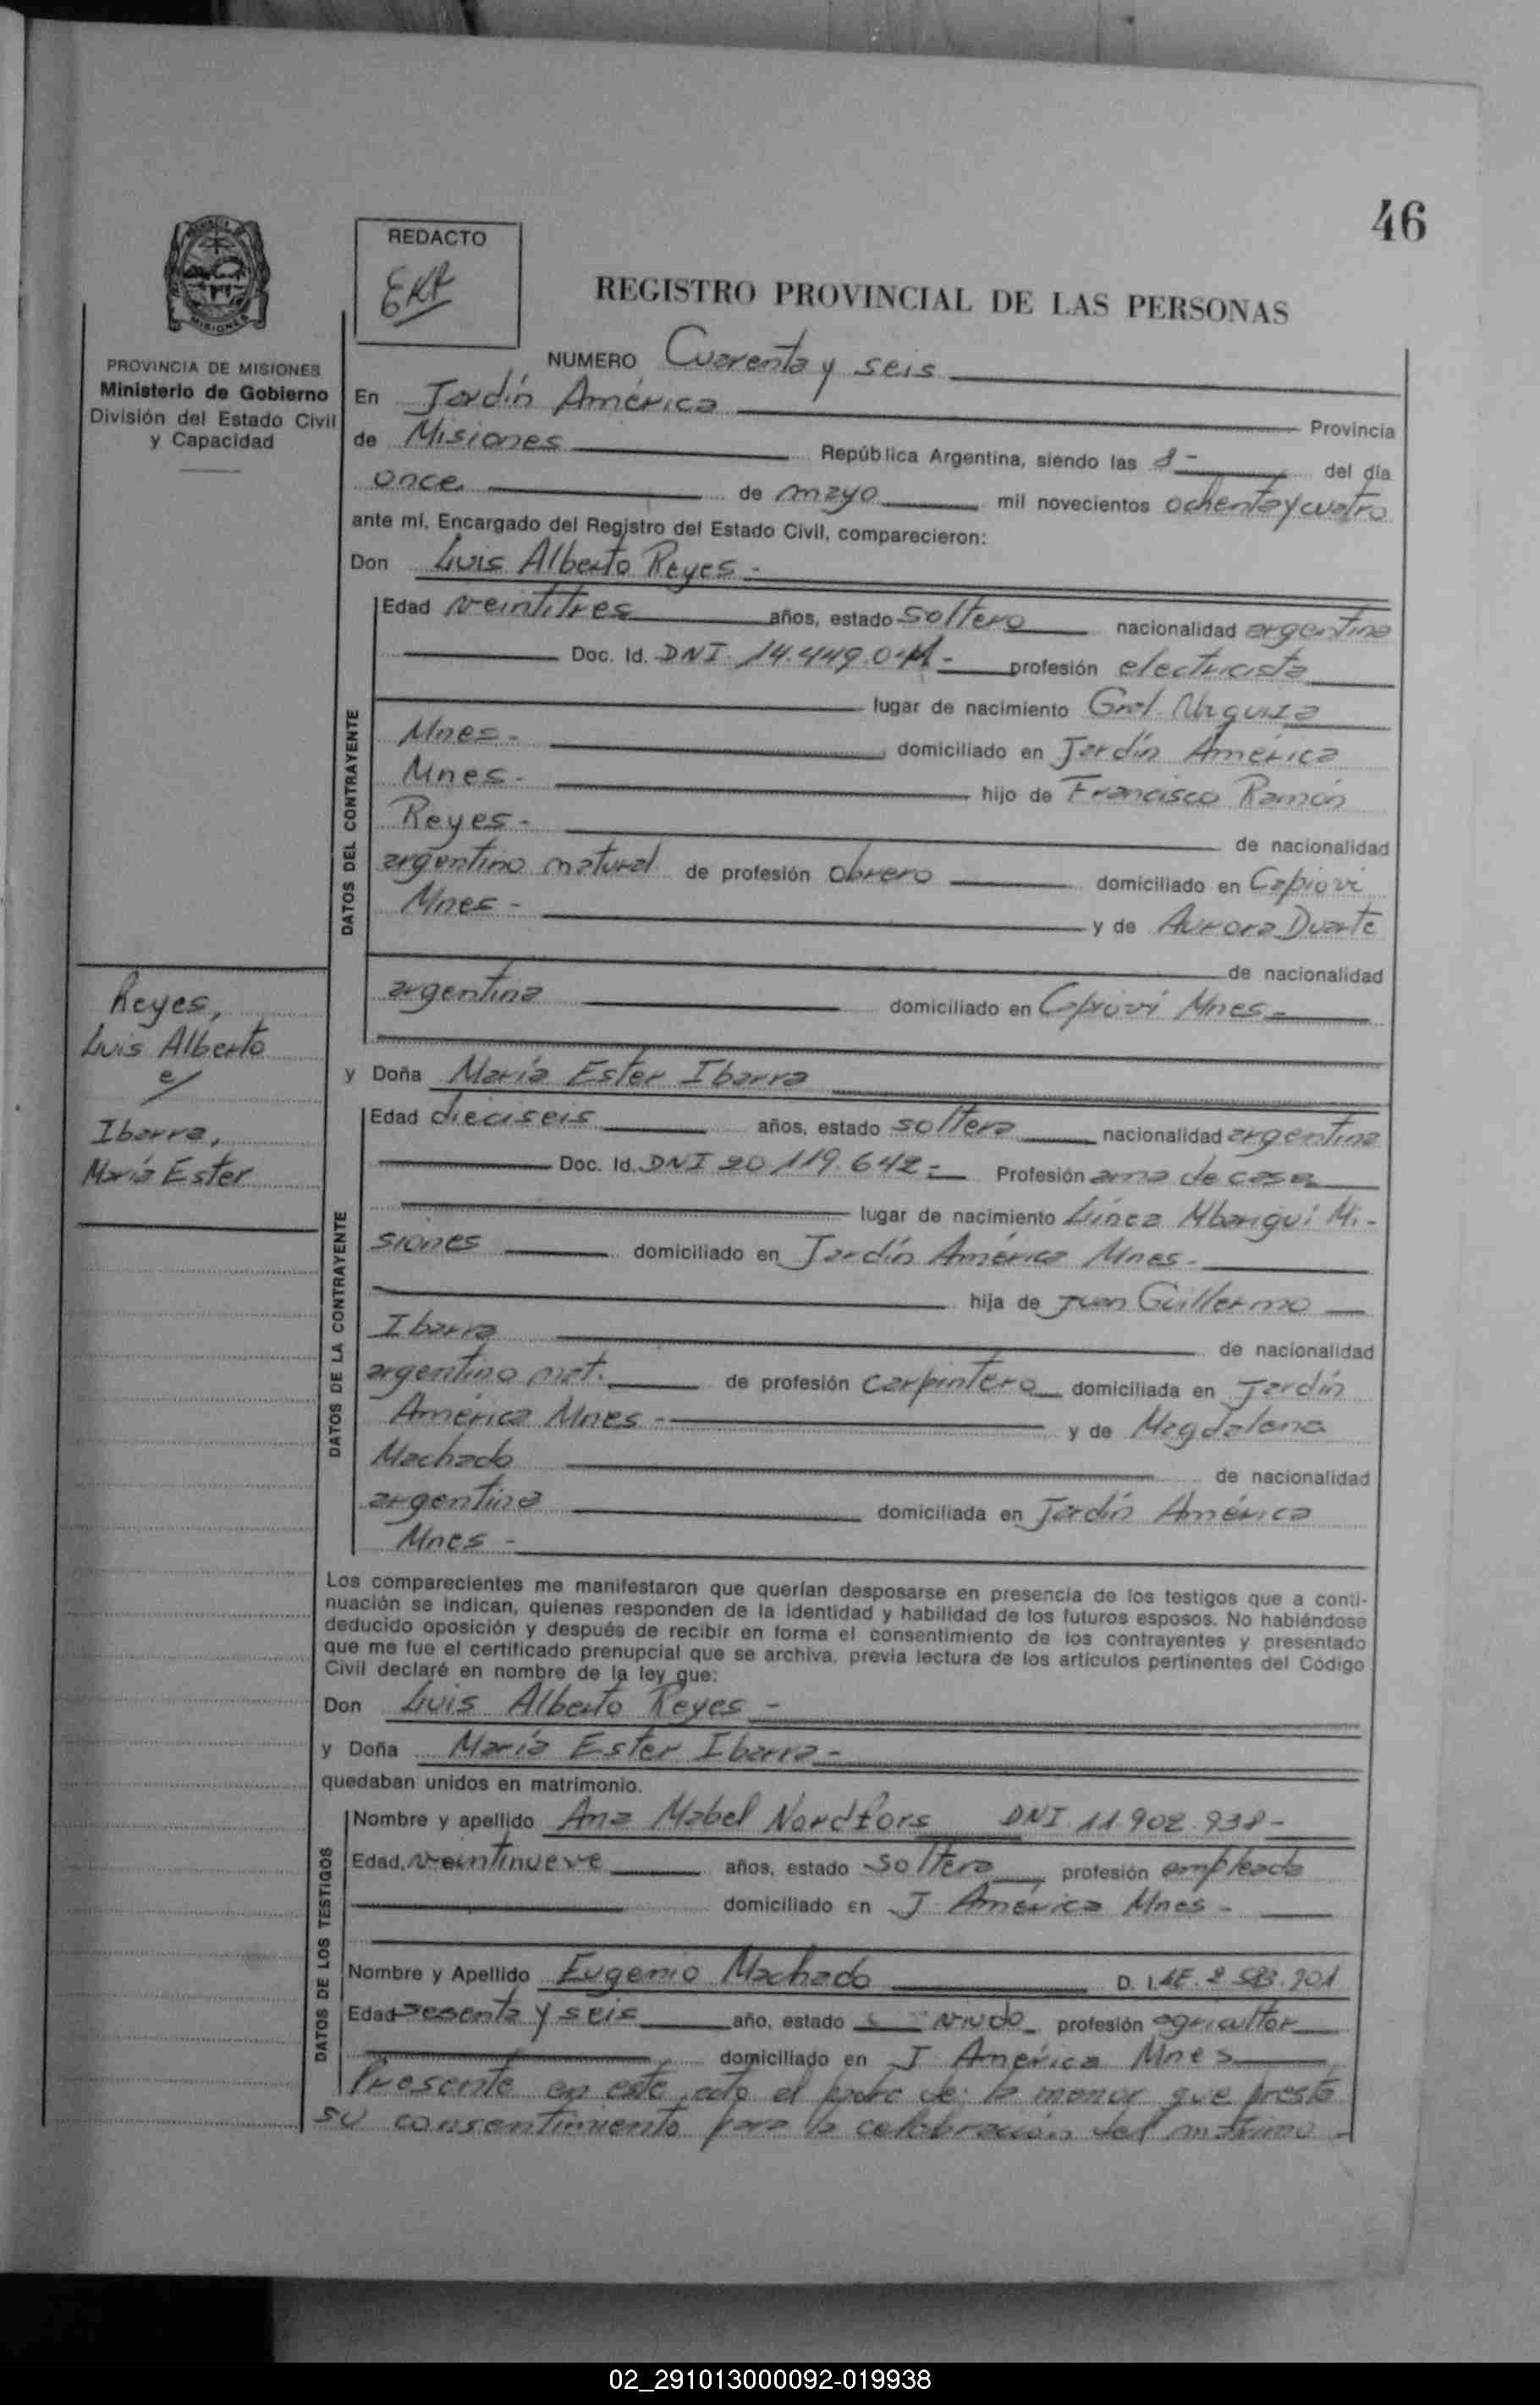 46
REDACTO
REGISTRO PROVINCIAL DE LAS PERSONAS
MISIONES
PROVINCIA DE MISIONES
Ministerio de Gobierno
División del Estado Civil
y Capacidad
NUMERO Cuarenta y seis
En Jardín América Provincia
de Misiones República Argentina, siendo las 8 - del día
once de mayo mil novecientos ochenta y cuatro
ante mí, Encargado del Registro del Estado Civil, comparecieron:
Don Luis Alberto Reyes -
DATOS DEL CONTRAYENTE
Edad veintitres años, estado soltero nacionalidad argentina
Doc. Id. DNI. 14.449. - profesión electricista
lugar de nacimiento Gral. Urquiza
Mnes - domiciliado en Jardín América
Mnes - hijo de Francisco Ramón
Reyes - de nacionalidad
argentino natural de profesión obrero domiciliado en Capioví
Mnes - y de Aurora Duarte
de nacionalidad
argentina domiciliado en Capioví Mnes -
Reyes,
Luis Alberto
c/
Ibarra,
María Ester
y Doña María Ester Ibarra
DATOS DE LA CONTRAYENTE
Edad dieciseis años, estado soltera nacionalidad argentina
Doc. Id. DNI 20 119.642 - Profesión ama de casa
lugar de nacimiento Línea Mbariguí Mi-
siones domiciliado en Jardín América Mnes -
hija de Juan Guillermo
Ibarra de nacionalidad
argentino nat. de profesión carpintero domiciliada en Jardín
América Mnes - y de Magdalena
Machado de nacionalidad
argentina domiciliada en Jardín América
Mnes -
Los comparecientes me manifestaron que querían desposarse en presencia de los testigos que a conti-
nuación se indican, quienes responden de la identidad y habilidad de los futuros esposos. No habiéndose
deducido oposición y después de recibir en forma el consentimiento de los contrayentes y presentado
que me fue el certificado prenupcial que se archiva, previa lectura de los artículos pertinentes del Código
Civil declaré en nombre de la ley que:
Don Luis Alberto Reyes -
y Doña María Ester Ibarra -
quedaban unidos en matrimonio.
DATOS DE LOS TESTIGOS
Nombre y apellido Ana Mabel Nordfors DNI. 11.902.938 -
Edad veintinueve años, estado soltera profesión empleada
domiciliado en J América Mnes -
Nombre y Apellido Eugenio Machado D. I. LE. 2 583.901
Edad sesenta y seis año, estado viudo profesión agricultor
domiciliado en J América Mnes
Presente en este acto el padre de la menor que presta
su consentimiento para la celebración del matrimo -
02_291013000092-019938